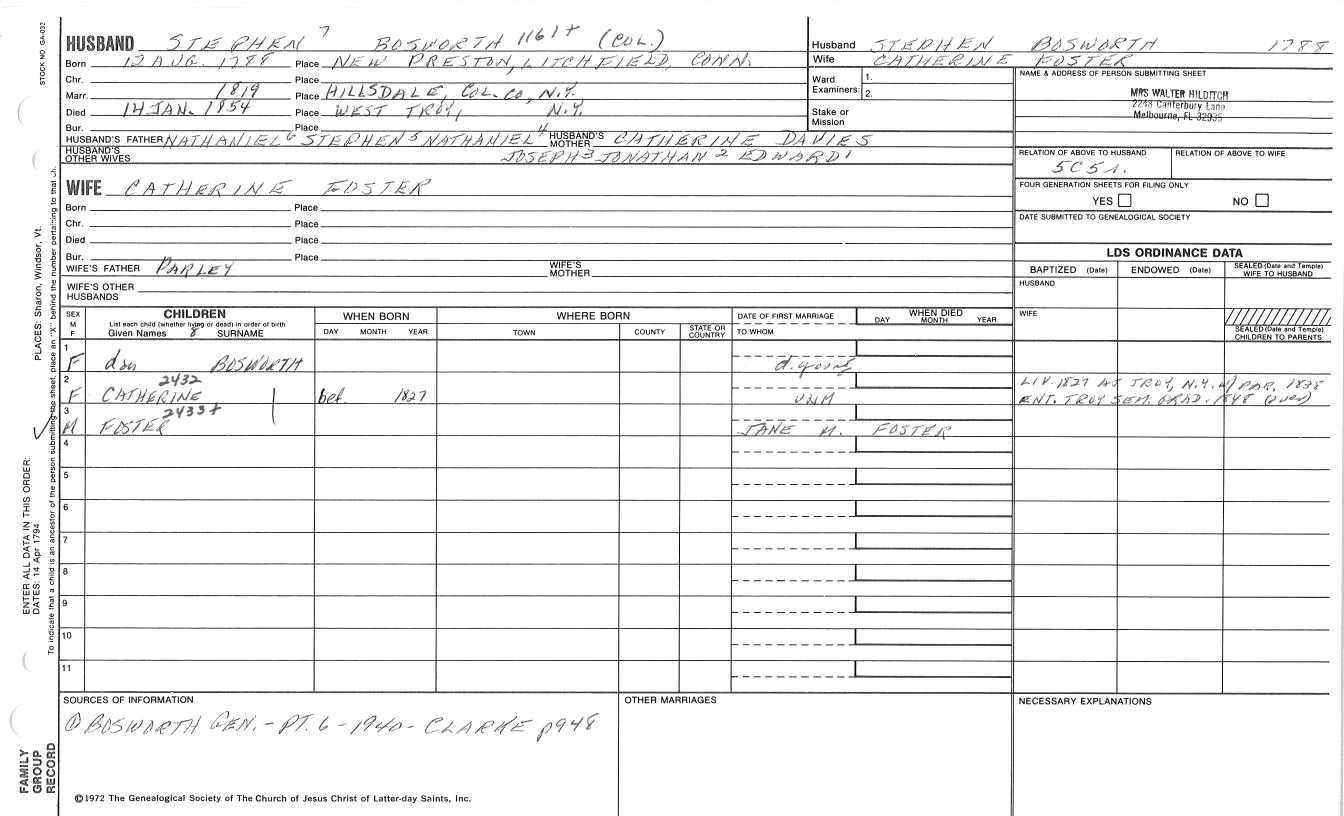 STOCK NO GA-032
HUSBAND STEPHEN 7 BOSWORTH 1161+ (COL.)
Born 12 AUG. 1788 Place NEW PRESTON, LITCHFIELD, CONN.
Chr. Place
Marr. 1819 Place HILLSDALE, COL. CO, N.Y.
Died 14 JAN. 1854 Place WEST TROY, N.Y.
Bur. Place
HUSBAND'S FATHER NATHANIEL 6 STEPHEN 5 NATHANIEL 4 HUSBAND'S MOTHER CATHERINE DAVIES
HUSBAND'S OTHER WIVES JOSEPH 3 JONATHAN 2 EDWARD 1
Husband STEPHEN BOSWORTH 1788
Wife CATHERINE FOSTER
Ward Examiners: 1.
2.
Stake or Mission
NAME & ADDRESS OF PERSON SUBMITTING SHEET
MRS WALTER HILDITCH
2248 Canterbury Lane
Melbourne, FL 32935
RELATION OF ABOVE TO HUSBAND RELATION OF ABOVE TO WIFE
5C5r.
FOUR GENERATION SHEETS FOR FILING ONLY
YES NO
DATE SUBMITTED TO GENEALOGICAL SOCIETY
WIFE CATHERINE FOSTER
Born Place
Chr. Place
Died Place
Bur. Place
WIFE'S FATHER PARLEY WIFE'S MOTHER
WIFE'S OTHER HUSBANDS
LDS ORDINANCE DATA
BAPTIZED (Date) ENDOWED (Date) SEALED (Date and Temple) WIFE TO HUSBAND
HUSBAND
WIFE
SEALED (Date and Temple) CHILDREN TO PARENTS
SEX M F CHILDREN WHEN BORN WHERE BORN DATE OF FIRST MARRIAGE WHEN DIED
List each child (whether living or dead) in order of birth
Given Names 8 SURNAME DAY MONTH YEAR TOWN COUNTY STATE OR COUNTRY TO WHOM DAY MONTH YEAR
1
F dau BOSWORTH d. young
2 2432 LIV. 1827 AT TROY, N.Y. W/ PAR. 1838
F CATHERINE bef. 1827 UNM ENT. TROY SEM. GRAD. 1848 (over)
3 2433+
M FOSTER JANE M. FOSTER
4
5
6
7
8
9
10
11
SOURCES OF INFORMATION OTHER MARRIAGES NECESSARY EXPLANATIONS
① BOSWORTH GEN. - PT. 6 - 1940 - CLARKE p948
©1972 The Genealogical Society of The Church of Jesus Christ of Latter-day Saints, Inc.
FAMILY
GROUP
RECORD
ENTER ALL DATA IN THIS ORDER:
DATES: 14 Apr 1794
PLACES: Sharon, Windsor, Vt.
To indicate that a child is an ancestor of the person submitting the sheet, place an "X" behind the number pertaining to that ch.